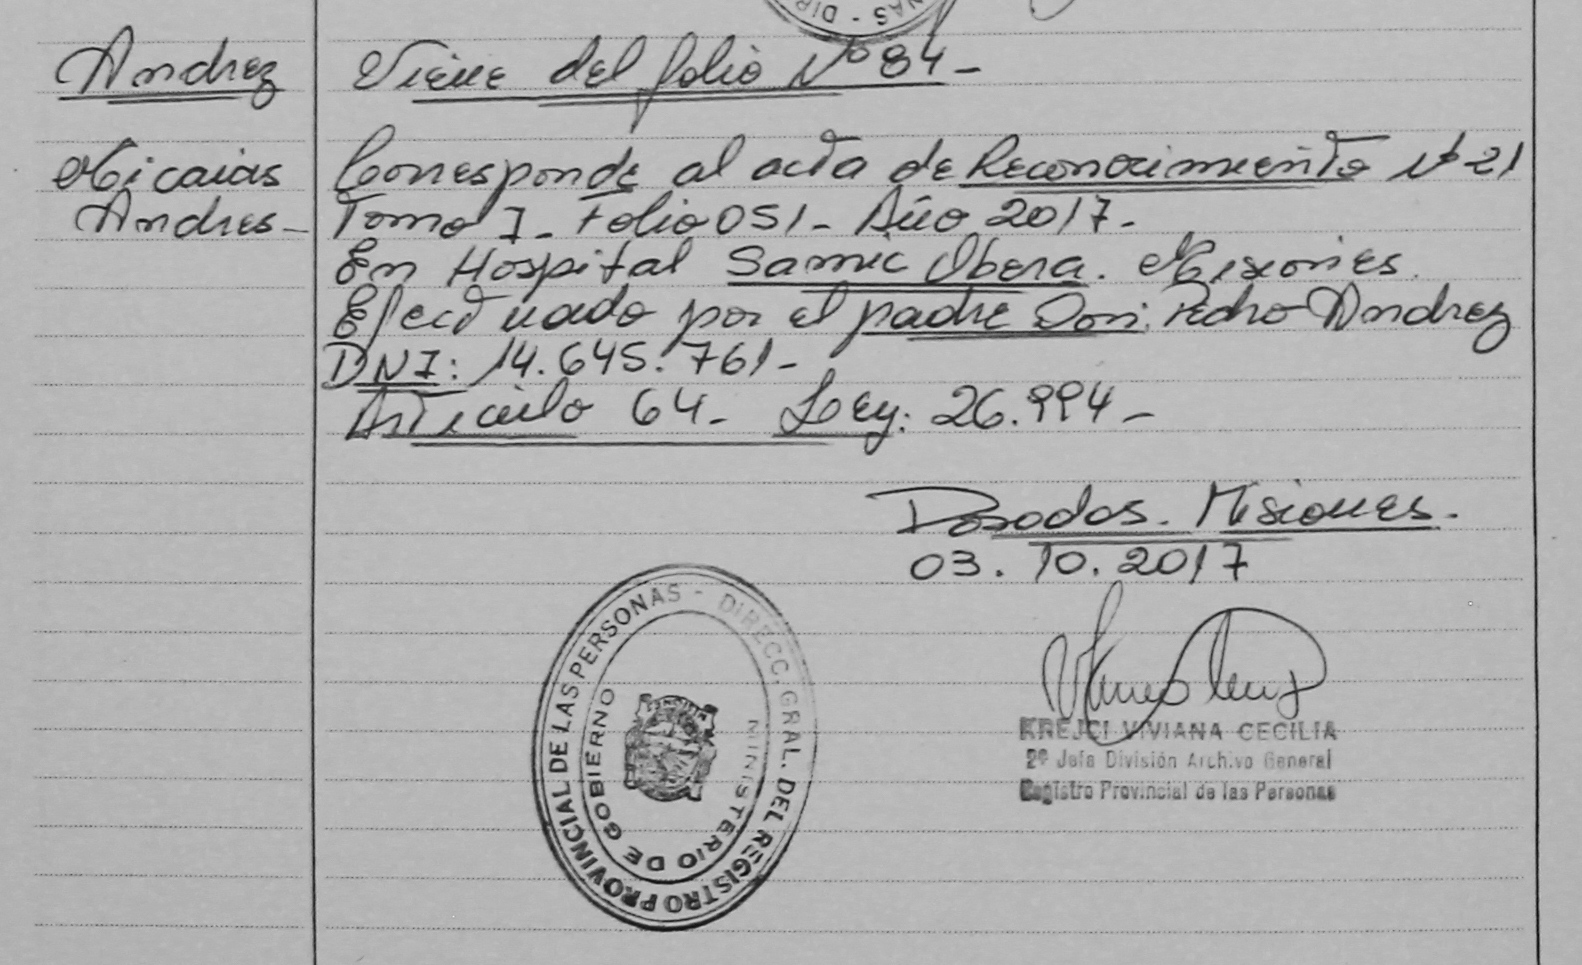 DIR - SAN
Andrez
Viene del folio Nº 84 -
Micaias
Andres -
Corresponde al acta de Reconocimiento Nº 21
Tomo I - Folio 051 - Año 2017 -
En Hospital Samic Obera. Misiones.
Efectuado por el padre Don: Pedro Andrez
DNI: 14.645.761 -
Articulo 64 - Ley: 26.994 -
Posadas. Misiones.
03. 10. 2017
KREJCI VIVIANA CECILIA
2º Jefa División Archivo General
Registro Provincial de las Personas
DIRECC. GRAL. DEL REGISTRO PROVINCIAL DE LAS PERSONAS -
MINISTERIO DE GOBIERNO